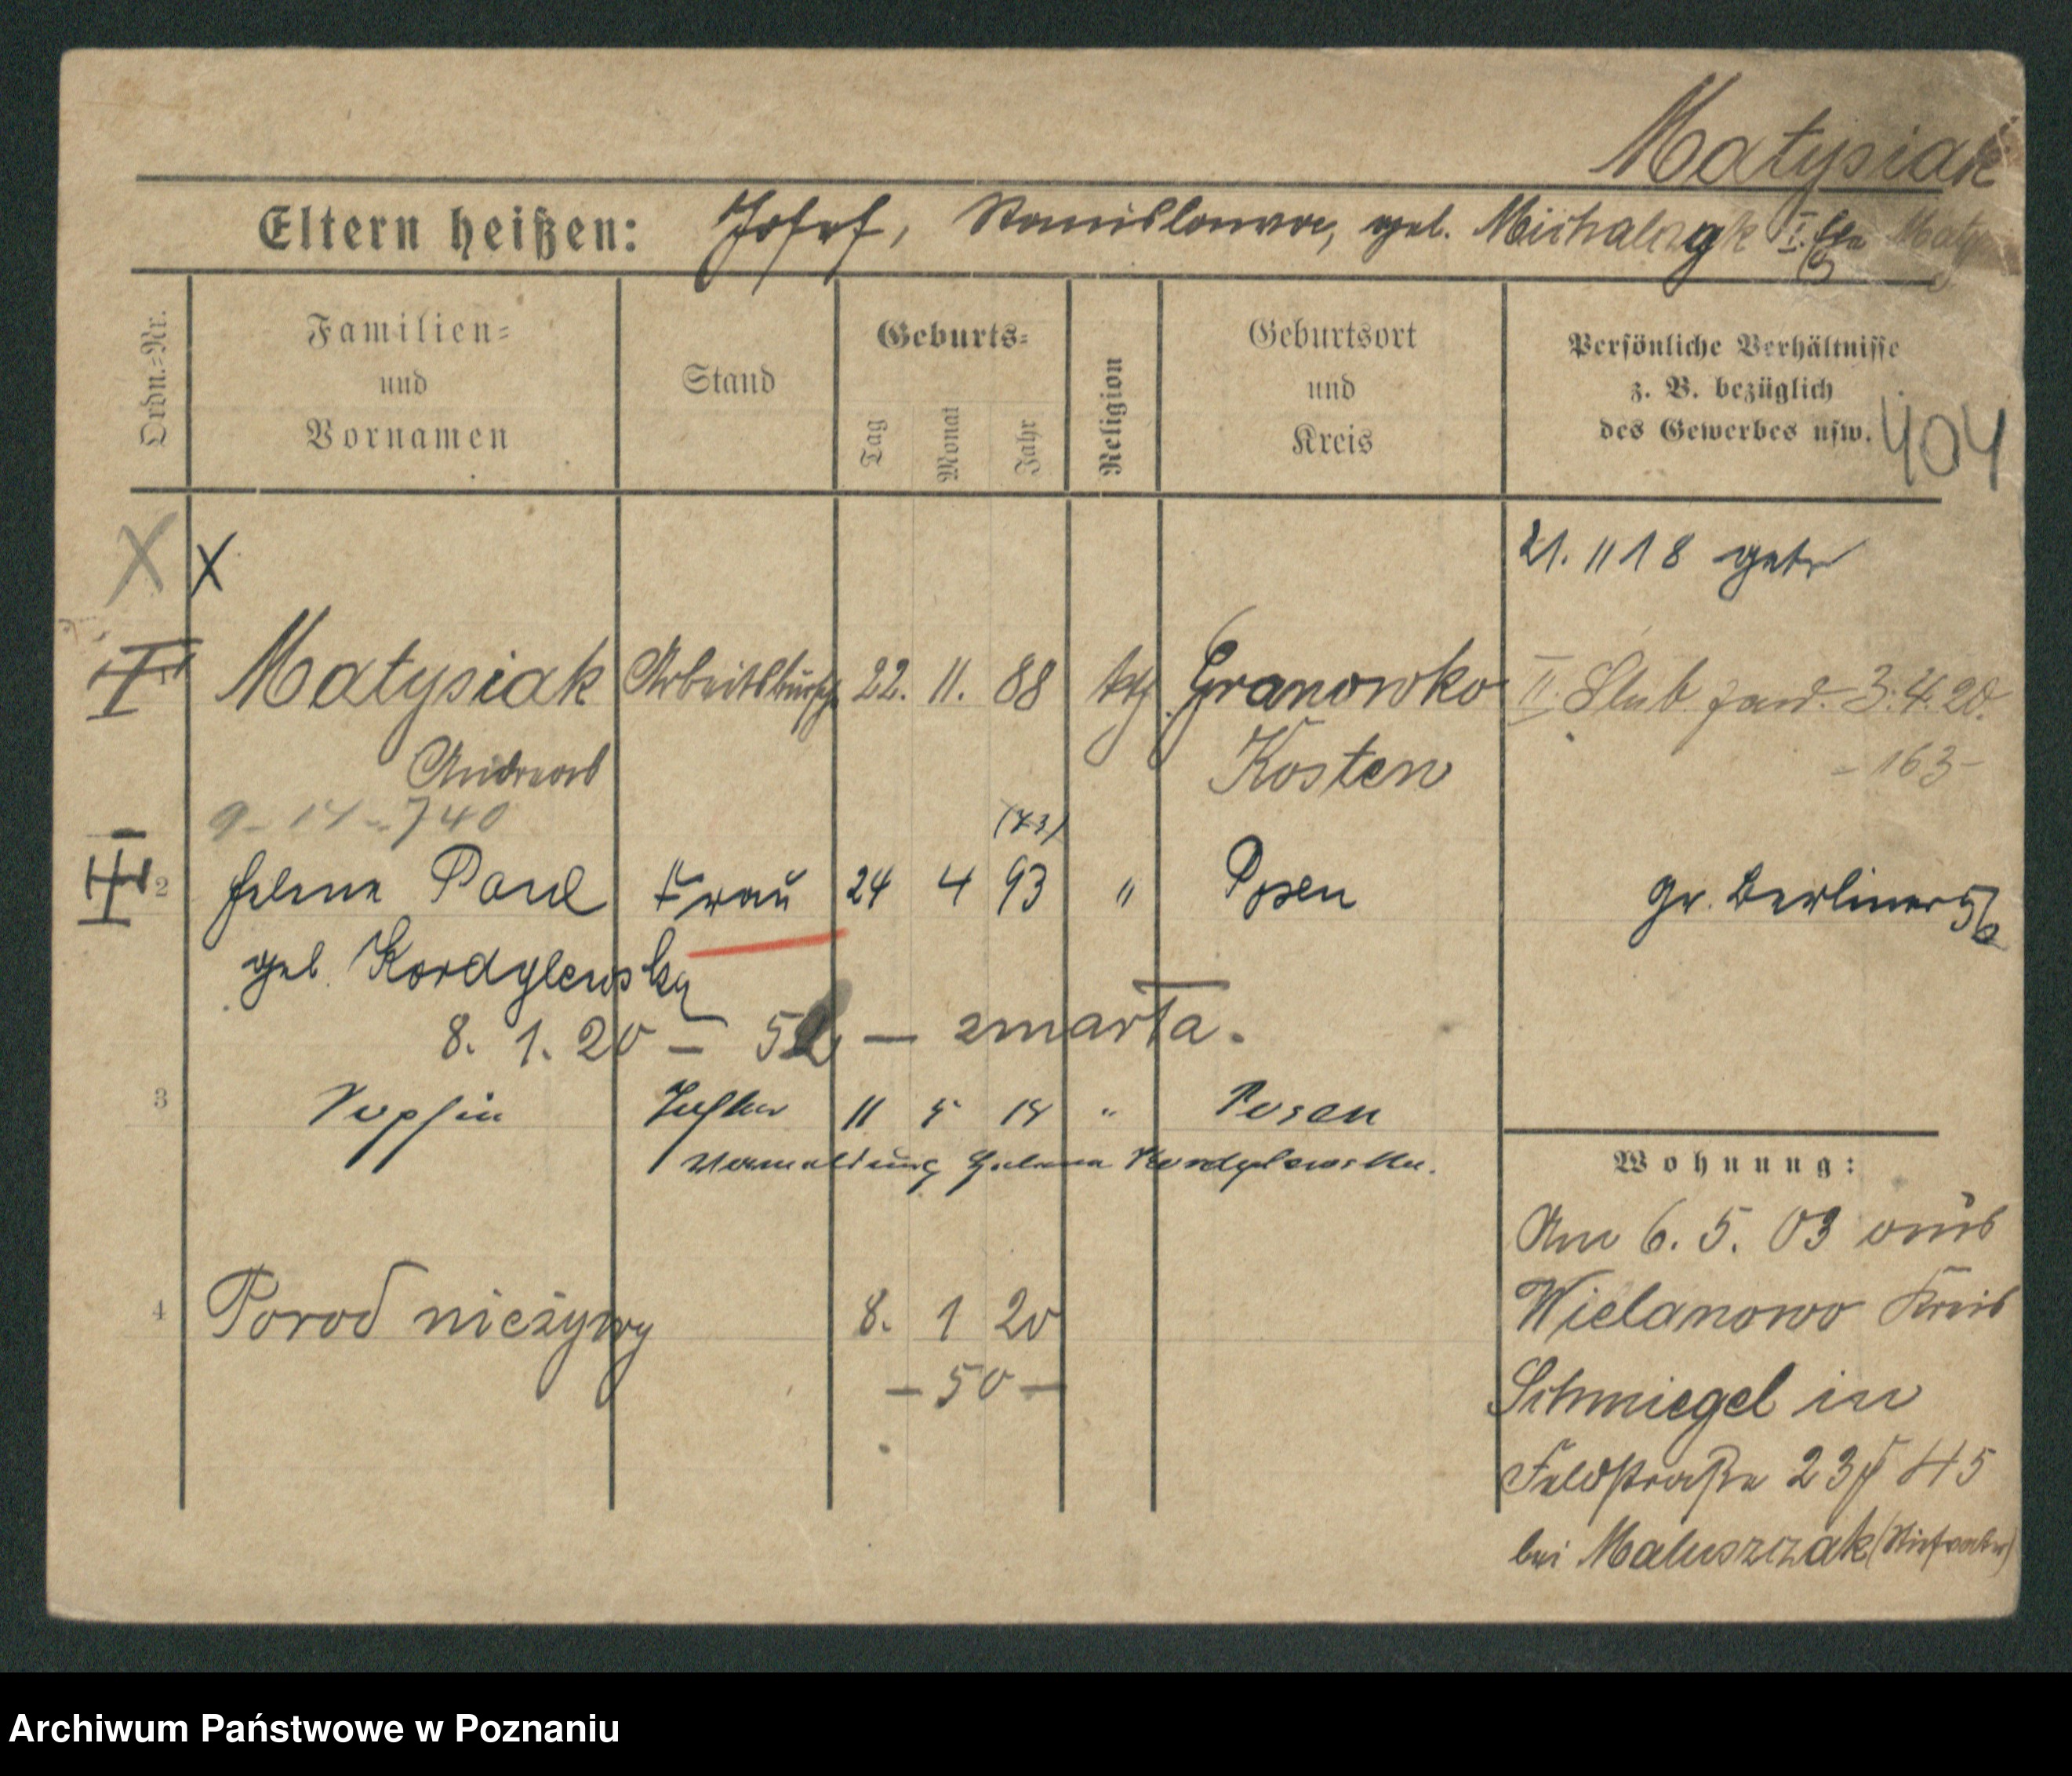 Matysiak
Eltern heißen: Josef, Stanislawa, geb. Michalczyk I. Ehe Maty
Ordn.=Nr.
Familien=
und
Vornamen
Stand
Geburts=
Tag
Monat
Jahr
Religion
Geburtsort
und
Kreis
Persönliche Verhältnisse
z. B. bezüglich
des Gewerbes usw.
404
X X
21. 11 18 getr
I Matysiak Arbeitsbursche 22. 11. 88 kth Granowko II. Ślub zaw. 3.4.20.
Andreas Kosten - 163 -
9 - 14 - 740
(73)
II 2 Helene Paul Frau 24 4 93 " Posen gr. Berliner 56
geb. Kordylewsky
8. 1. 20 - 52 - zmarła.
3 Sophia Tochter 11 5 14 " Posen
Helena Kordylewska.
4 Porod nieżywy 8. 1 20
- 50 -
Wohnung:
Am 6. 5. 03 aus
Wielanowo Kreis
Schmiegel in
Feldstraße 23 45
bei Maluszczak (Stiefvater)
Archiwum Państwowe w Poznaniu